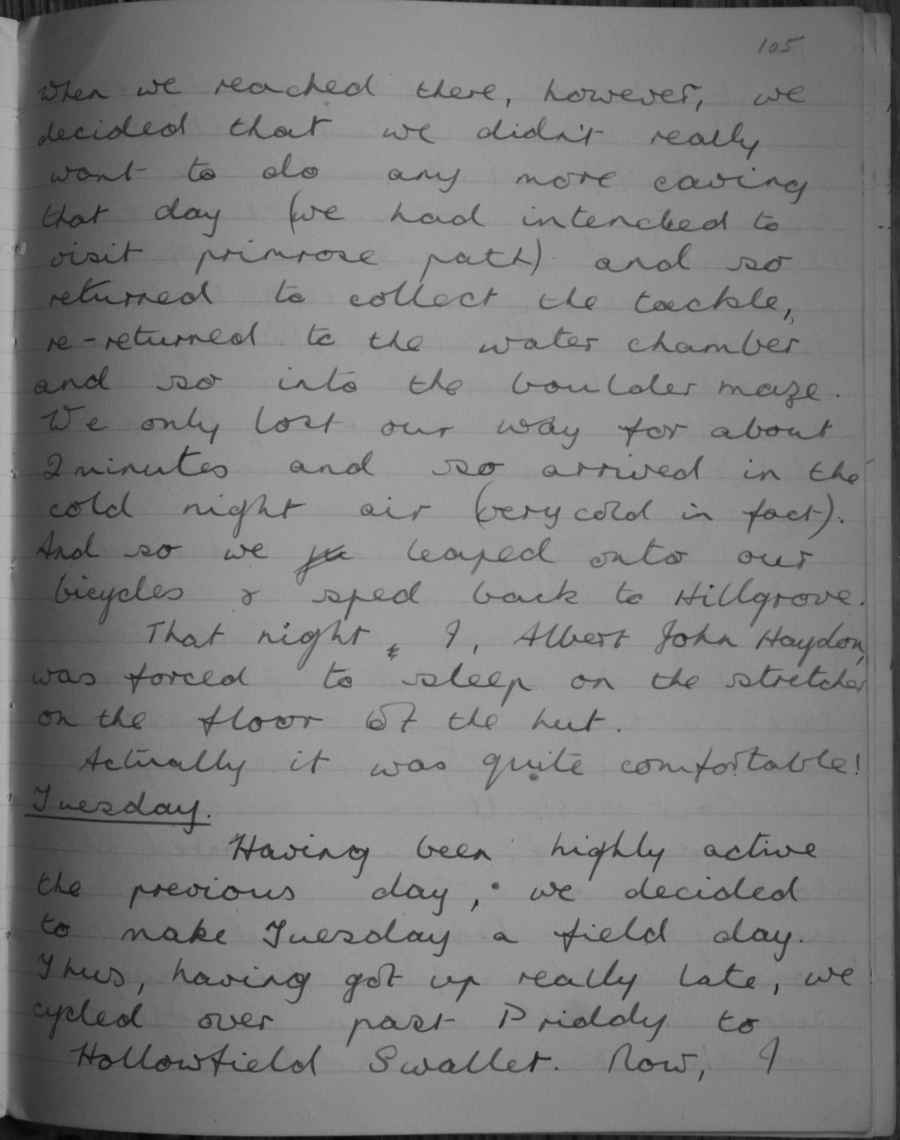 105
When we reached there, however, we
decided that we didn't really
want to do any more caving
that day (we had intended to
visit primrose path) and so
returned to collect the tackle,
re-returned to the water chamber
and so into the boulder maze.
We only lost our way for about
2 minutes and so arrived in the
cold night air (very cold in fact).
And so we leaped onto our
bicycles & sped back to Hillgrove.
That night, I, Albert John Haydon,
was forced to sleep on the stretcher
on the floor of the hut.
Actually it was quite comfortable!
Tuesday.
Having been highly active
the previous day, we decided
to make Tuesday a field day.
Thus, having got up really late, we
cycled over past Priddy to
Hollowfield Swallet. Now, I